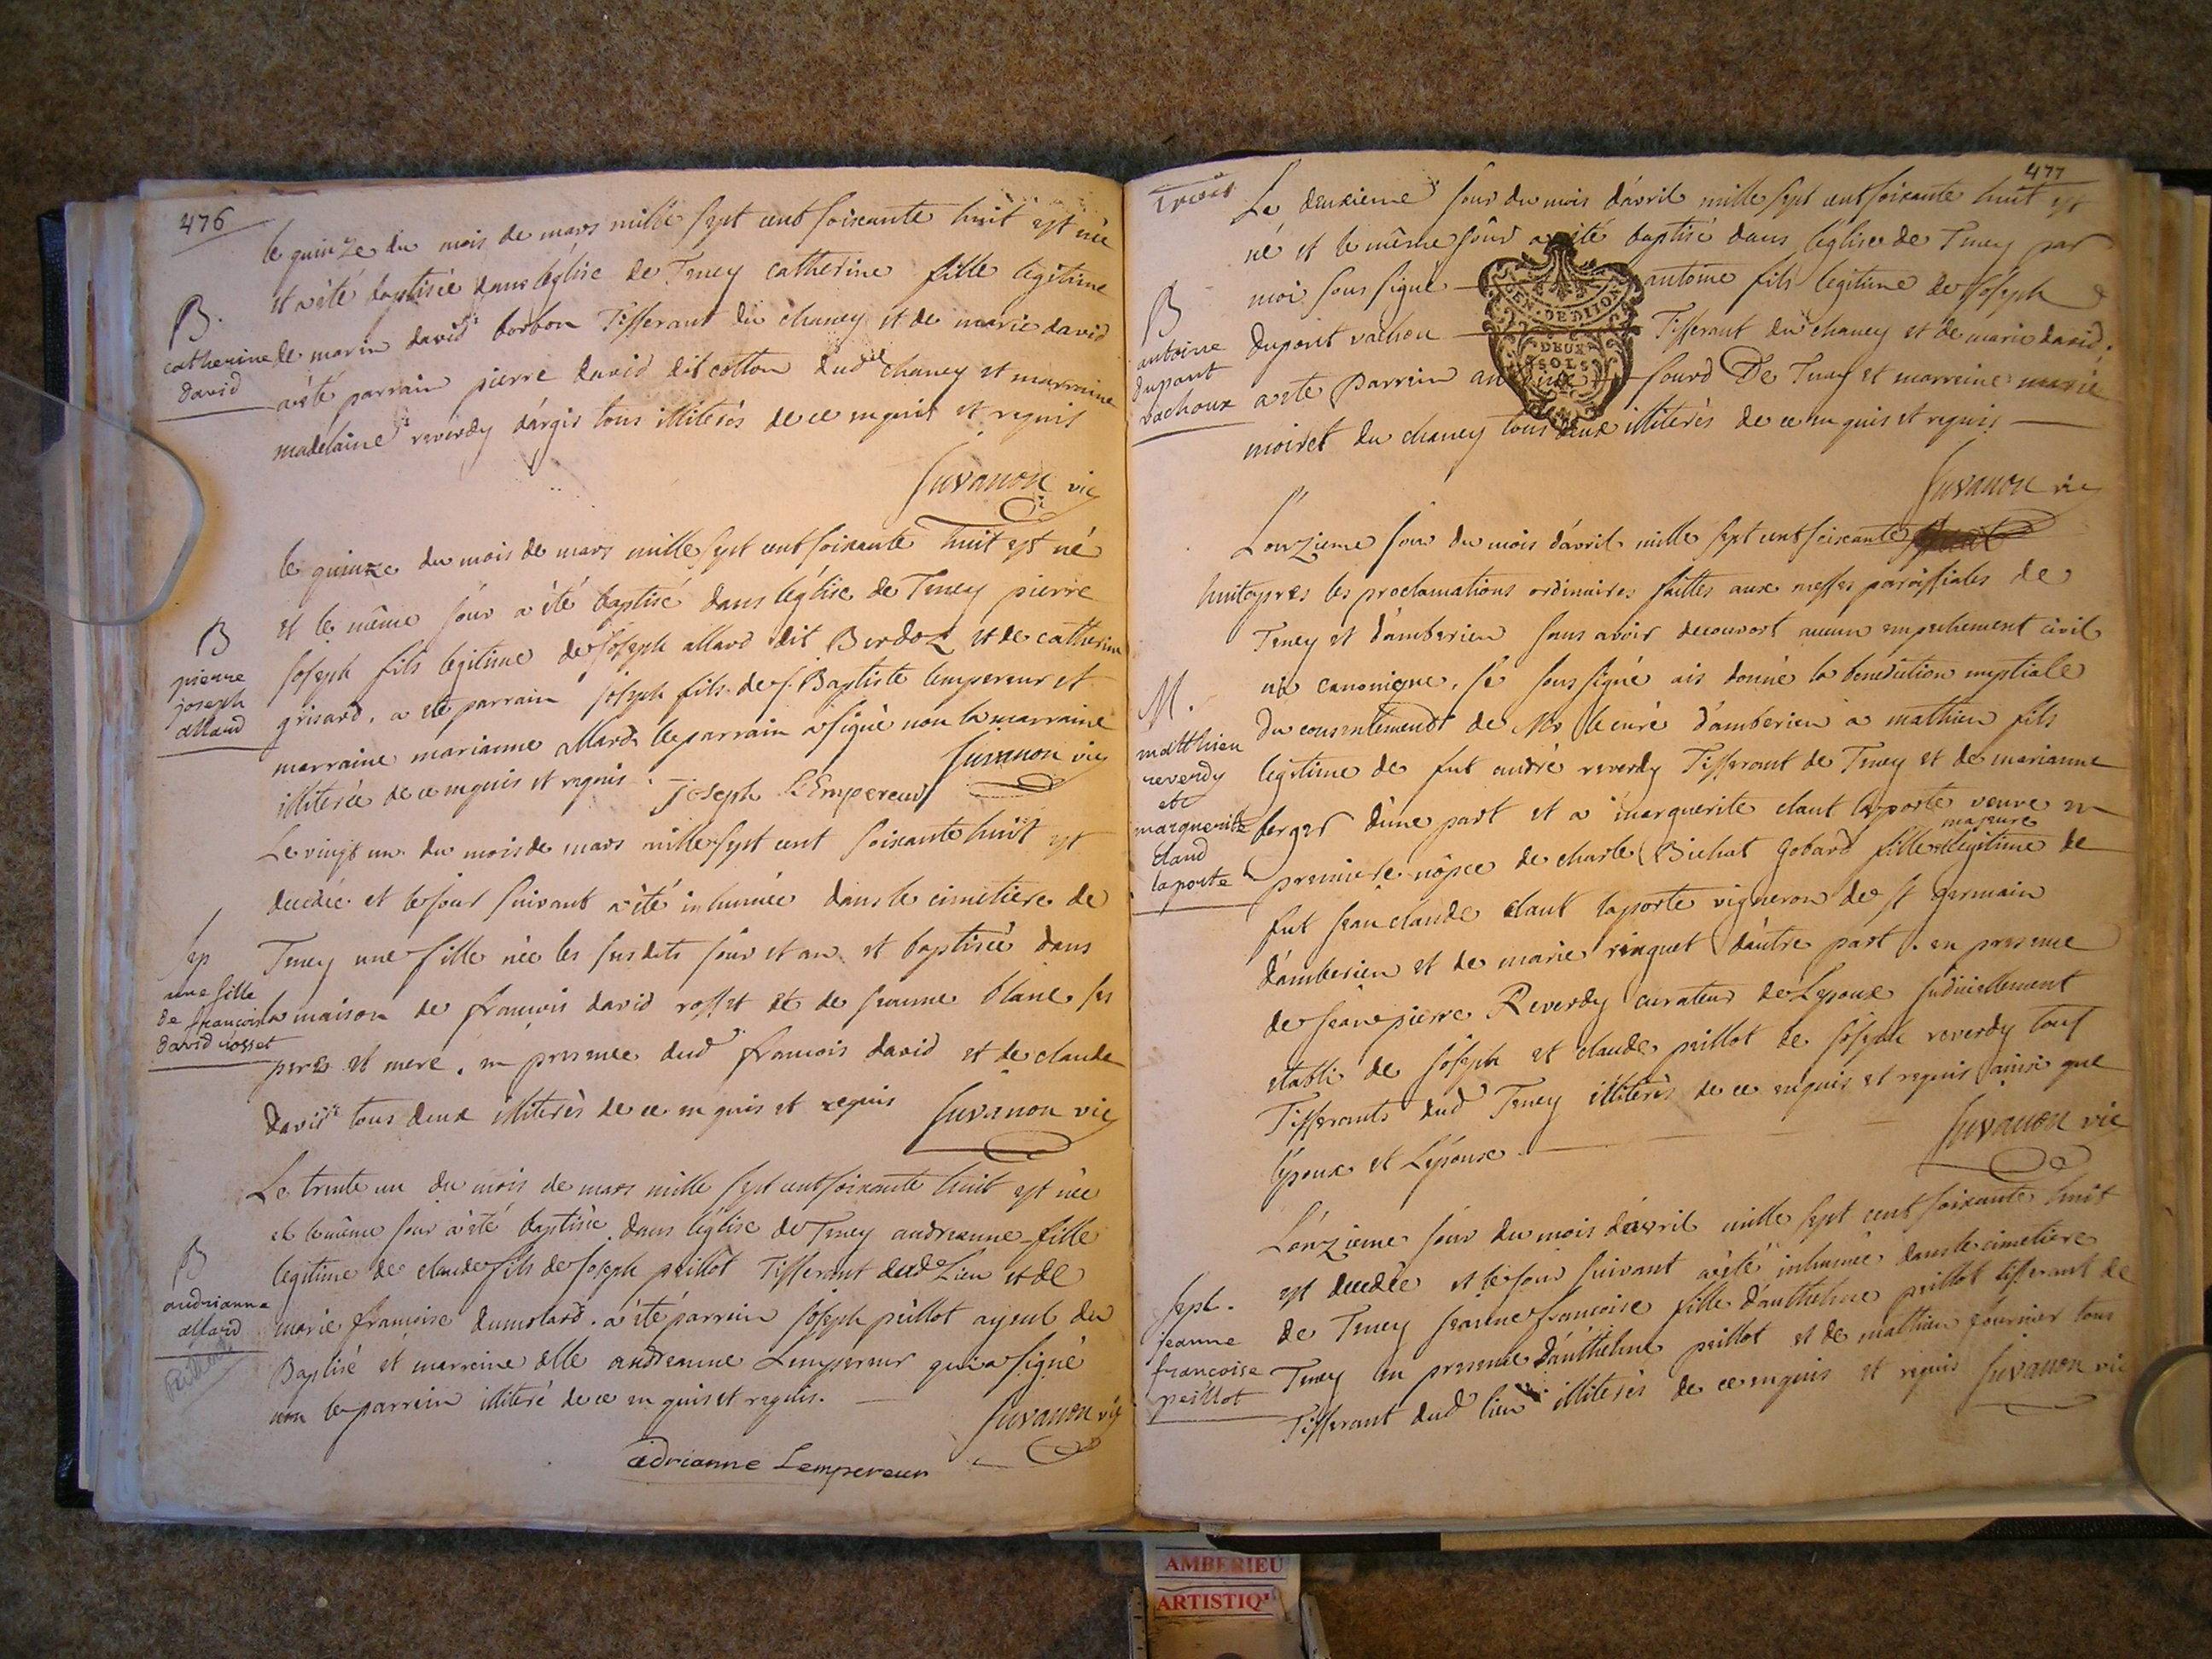 476
le quinze du mois de mars mille sept cent soixante huit est née
et a été baptisée dans l'église de Teney catherine fille légitime
B.
catherine
david
de marin david borbon Tisserant du chaney et de marie david
a été parrain pierre david dit cotton dud chaney et marraine
madelaine reverdy d'argis tous illiterés de ce enquis et requis
Juvanon vic
le quinze du mois de mars mille sept cent soixante huit est né
et le même jour a été baptisé dans l'église de Teney pierre
B
pierre
joseph
allard
joseph fils legitime de joseph allard dit Berdoz et de catherine
grisard. a été parrain joseph fils de s. Baptiste lempereur et
marraine marianne allard, le parrain a signé non la marraine
illiterée de ce enquis et requis. Joseph L'Empereur Juvanon vic
Le vingt un du mois de mars mille sept cent soixante huit est
decedée et le jour suivant a été inhumée dans le cimetiere de
Sep
une fille
de francois
david rosset
Teney une fille née les susdits jour et an et baptisée dans
la maison de francois david rosset et de jeanne blanc ses
peres et mere. en presence dud francois david et de claude
david tous deux illiterés de ce enquis et requis Juvanon vic
Le trente un du mois de mars mille sept cent soixante huit est née
et le même jour a été baptisée dans l'église de Teney andreanne fille
B
andrianne
allard
legitime de claude fils de joseph peillot Tisserant dud Lieu et de
marie francoise dumolard. a été parrain joseph peillot ayeul du
Baptisé et marreine dlle andreanne Lempereur qui a signé
non le parrein illiteré de ce enquis et requis.
Juvanon vic
adrianne Lempereur
477
Le deuxieme jour du mois d'avril mille sept cent soixante huit est
né et le même jour a été baptisé dans l'église de Teney par
B
antoine
dupont
vachoux
moi sous signé antoine fils legitime de joseph
dupont vachou Tisserant du chaney et de marie david.
a eté parrein jourd De Teney et marreine marie
moiret du chaney tous deux illiterés de ce enquis et requis
GEN. DE DIJON
DEUX
SOLS
Juvanon vic
L'onzieme jour du mois d'avril mille sept cent soixante
huit apres les proclamations ordinaires faittes aux messes paroissiales de
Teney et d'amberieu sans avoir decouvert aucun empechement civil
M.
matthieu
reverdy
et
marguerite
claud
laporte
ni canonique, je sous signé ais donné la benediction nuptiale
du consentement de Mr le curé d'amberieu a mathieu fils
legitime de fut andré reverdy Tisserant de Teney et de marianne
berger d'une part et a marguerite claut laporte veuve en
premiere nopce de charle Bichat Gobard fille majeure legitime de
fut jean claude claut laporte vigneron de st germain
d'amberieu et de marie ringuet d'autre part. en presence
de jean pierre Reverdy curateur de Lepoux judiciellement
etabli de joseph et claude peillot de joseph reverdy tous
Tisserants dud Teney illiterés de ce enquis et requis ainsi que
l'époux et L'epouse.
Juvanon vic
L'onzieme jour du mois d'avril mille sept cent soixante huit
est decedée et le jour suivant a été inhumée dans le cimetiere
Seple.
jeanne
francoise
peillot
de Teney jeanne francoise fille d'anthelme peillot tisserant de
Teney en presence d'anthelme peillot et de mathieu fournier tous
Tisserant dud lieu illiterés de ce enquis et requis Juvanon vic
AMBERIEU
ARTISTIQ